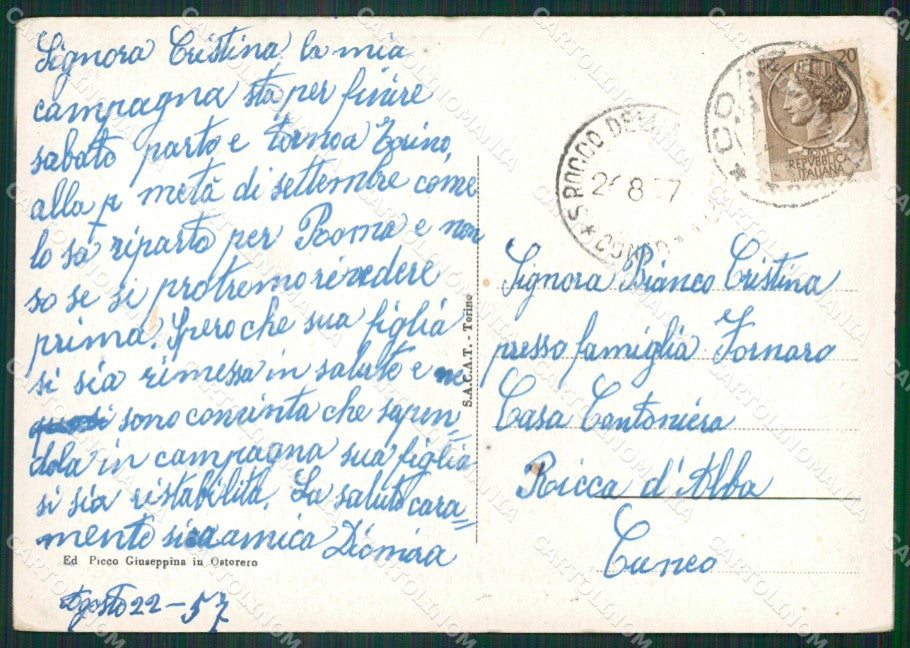 Signora Cristina la mia
campagna sta per finire
sabato parto e torno a Torino,
alla p metà di settembre come
lo sà riparto per Roma e non
so se si protremo rivedere
prima. Spero che sua figlia
si sia rimessa in salute e
sono convinta che sapen=
dola in campagna sua figlia
si sia ristabilita. La saluto cara=
mente sua amica
Ed Picco Giuseppina in Ostorero
Agosto 22-57
S.A.C.A.T. - Torino
S. ROCCO
8
20
REPVBBLICA
ITALIANA
Signora Bianco Cristina
presso famiglia Fornaro
Casa Cantoniera
Ricca d'Alba
Cuneo
CARTOLINOMANIA